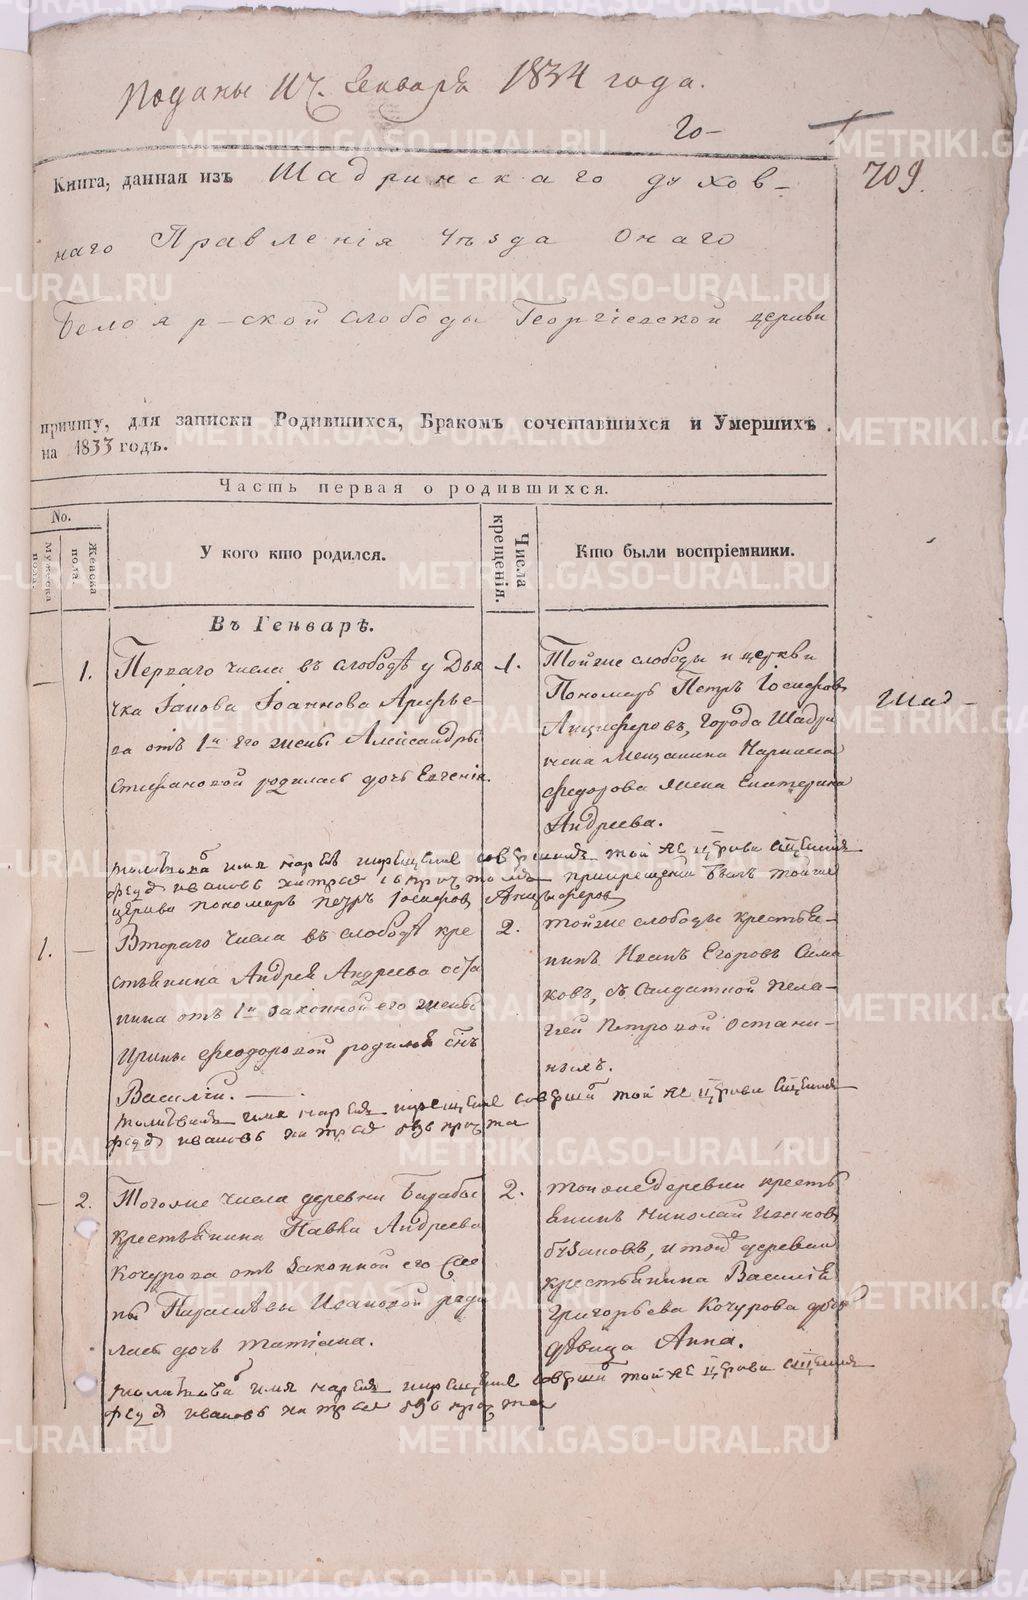 Поданы 17. Генваря 1834 года.
го-
Книга, данная изъ Шадринскаго духов-
709.
наго Правленія Уѣзда онаго
Белоярской слободы Георгіевской церкви
причту, для записки Родившихся, Бракомъ сочетавшихся и Умершихъ.
на 1833 годъ.
Часть первая о родившихся.
No.
Мужеска пола.
Женска пола.
У кого кто родился.
Числа крещенія.
Кто были воспріемники.
Въ Генварѣ.
— 1.
Перваго числа въ слободѣ у Дья
чка Іоаннова Арефье-
ва отъ 1й его жены Александры
Стефановой родилась дочь Евгенія.
1.
Тойже слободы и церкви
Пономарь Петръ Іосифовъ
Анциферовъ, города Шадри
нска Мещанина
Федорова жена Екатерина
Андреева.
Шад-
молитвова имя нареч и крещеніе соверши той же церкви священникъ
Феод Ивановъ при крещеніи былъ тойже
церкви пономарь Петръ Іосифовъ Анциферовъ
1. —
Втораго числа въ слободѣ кре
стьянина Андрея Андреева Оста
нина отъ 1й законной его жены
Ирины Феодоровой родился сынъ
Василій. —
2.
тойже слободы крестья-
нинъ Иванъ Егоровъ Сима
ковъ, съ Салдаткой Пела-
геей Петровой Остани-
ныхъ.
молитвова имя нареч крещеніе соверши той же церкви священникъ
Феод Ивановъ
— 2.
Тогоже числа деревни Барабы
крестьянина Павла Андреева
Кочурова отъ законной его Же
ны Парасковьи Ивановой роди
лась дочь татіана.
2.
тойже деревни кресть
янинъ Николай Ивановъ
Бузановъ, и той деревни
крестьянина Василія
Григорьева Кочурова дочь
дѣвица Анна.
молитвова имя нареч крещеніе соверши той же церкви священникъ
Феод Ивановъ
METRIKI.GASO-URAL.RU